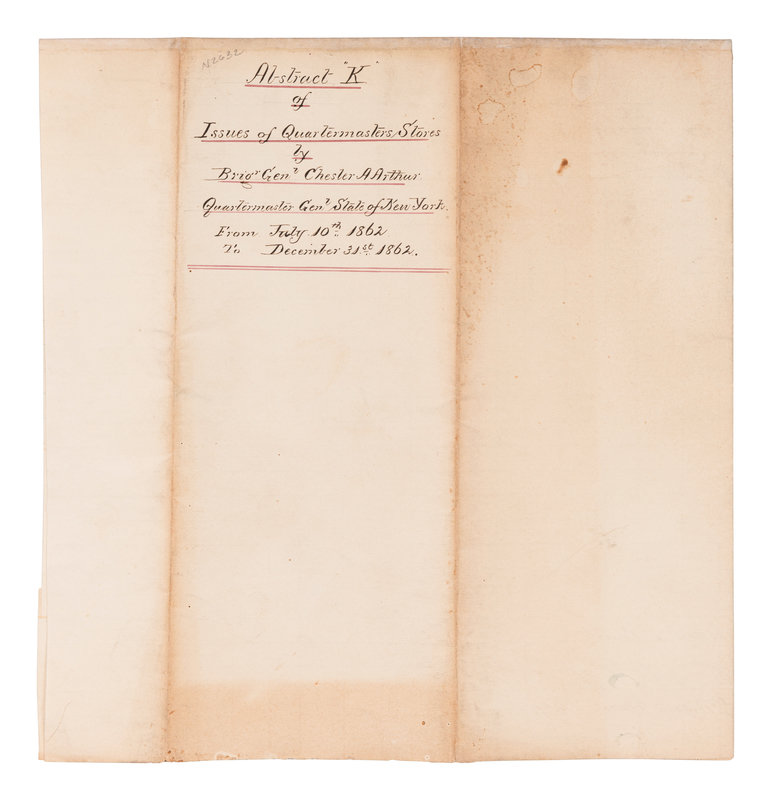 N2632
Abstract "K"
of
Issues of Quartermasters Stores
by
Brigr Genl Chester A Arthur
Quartermaster Genl State of New York.
From July 10th 1862
To December 31st 1862.